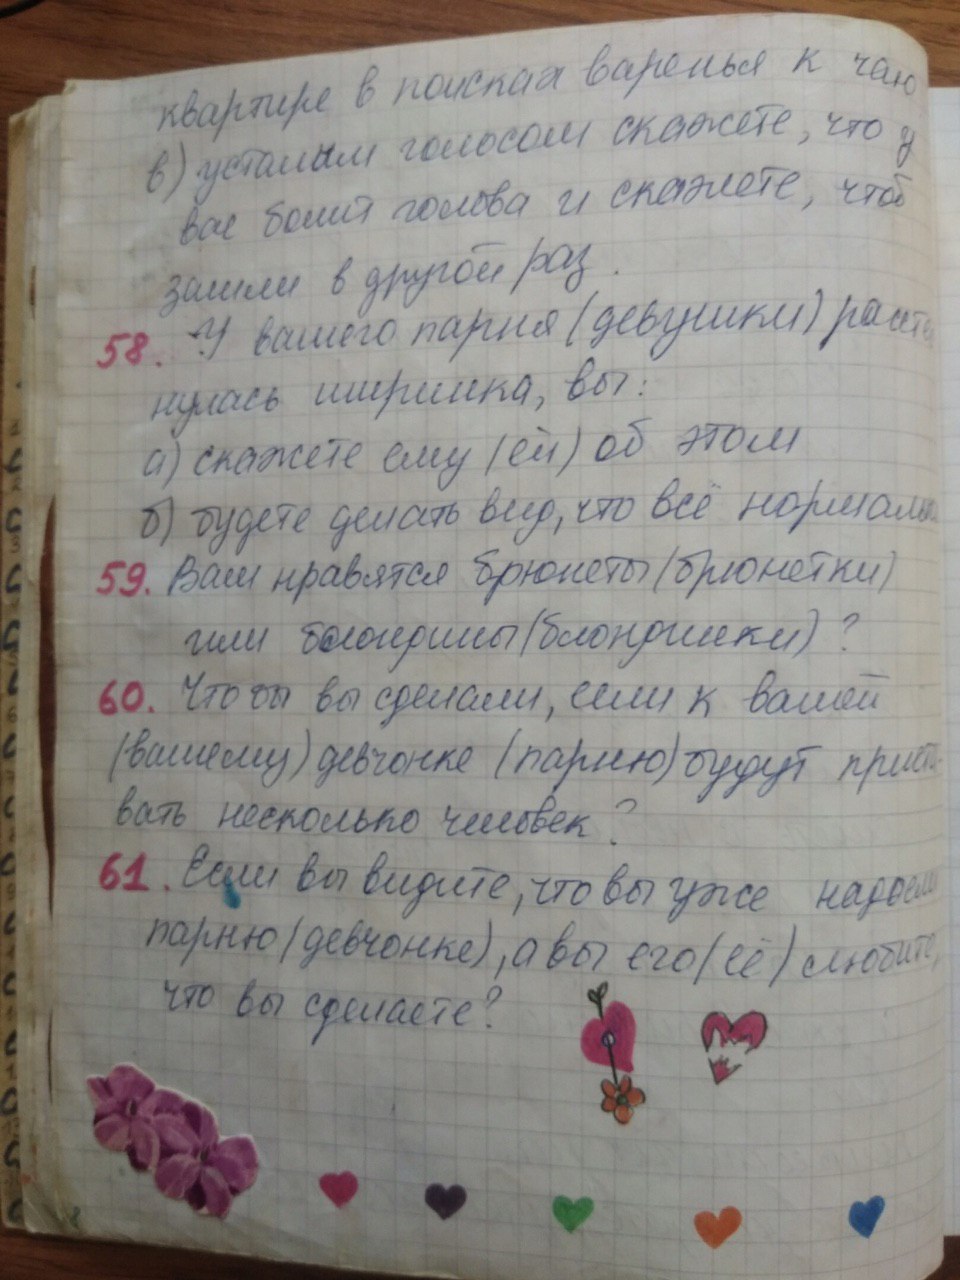 квартире в поисках варенья к чаю
в) усталым голосом скажете, что у
вас болит голова и скажете, чтоб
зашли в другой раз.
58. У вашего парня (девушки) расстег
нулась ширинка, вы:
а) скажете ему (ей) об этом
б) будете делать вид, что всё нормально
59. Вам нравятся брюнеты (брюнетки)
или блондины (блондинки)?
60. Что бы вы сделали, если к вашей
(вашему) девчонке (парню) будут приста-
вать несколько человек?
61. Если вы видите, что вы уже надоели
парню (девчонке), а вы его (её) любите,
что вы сделаете?